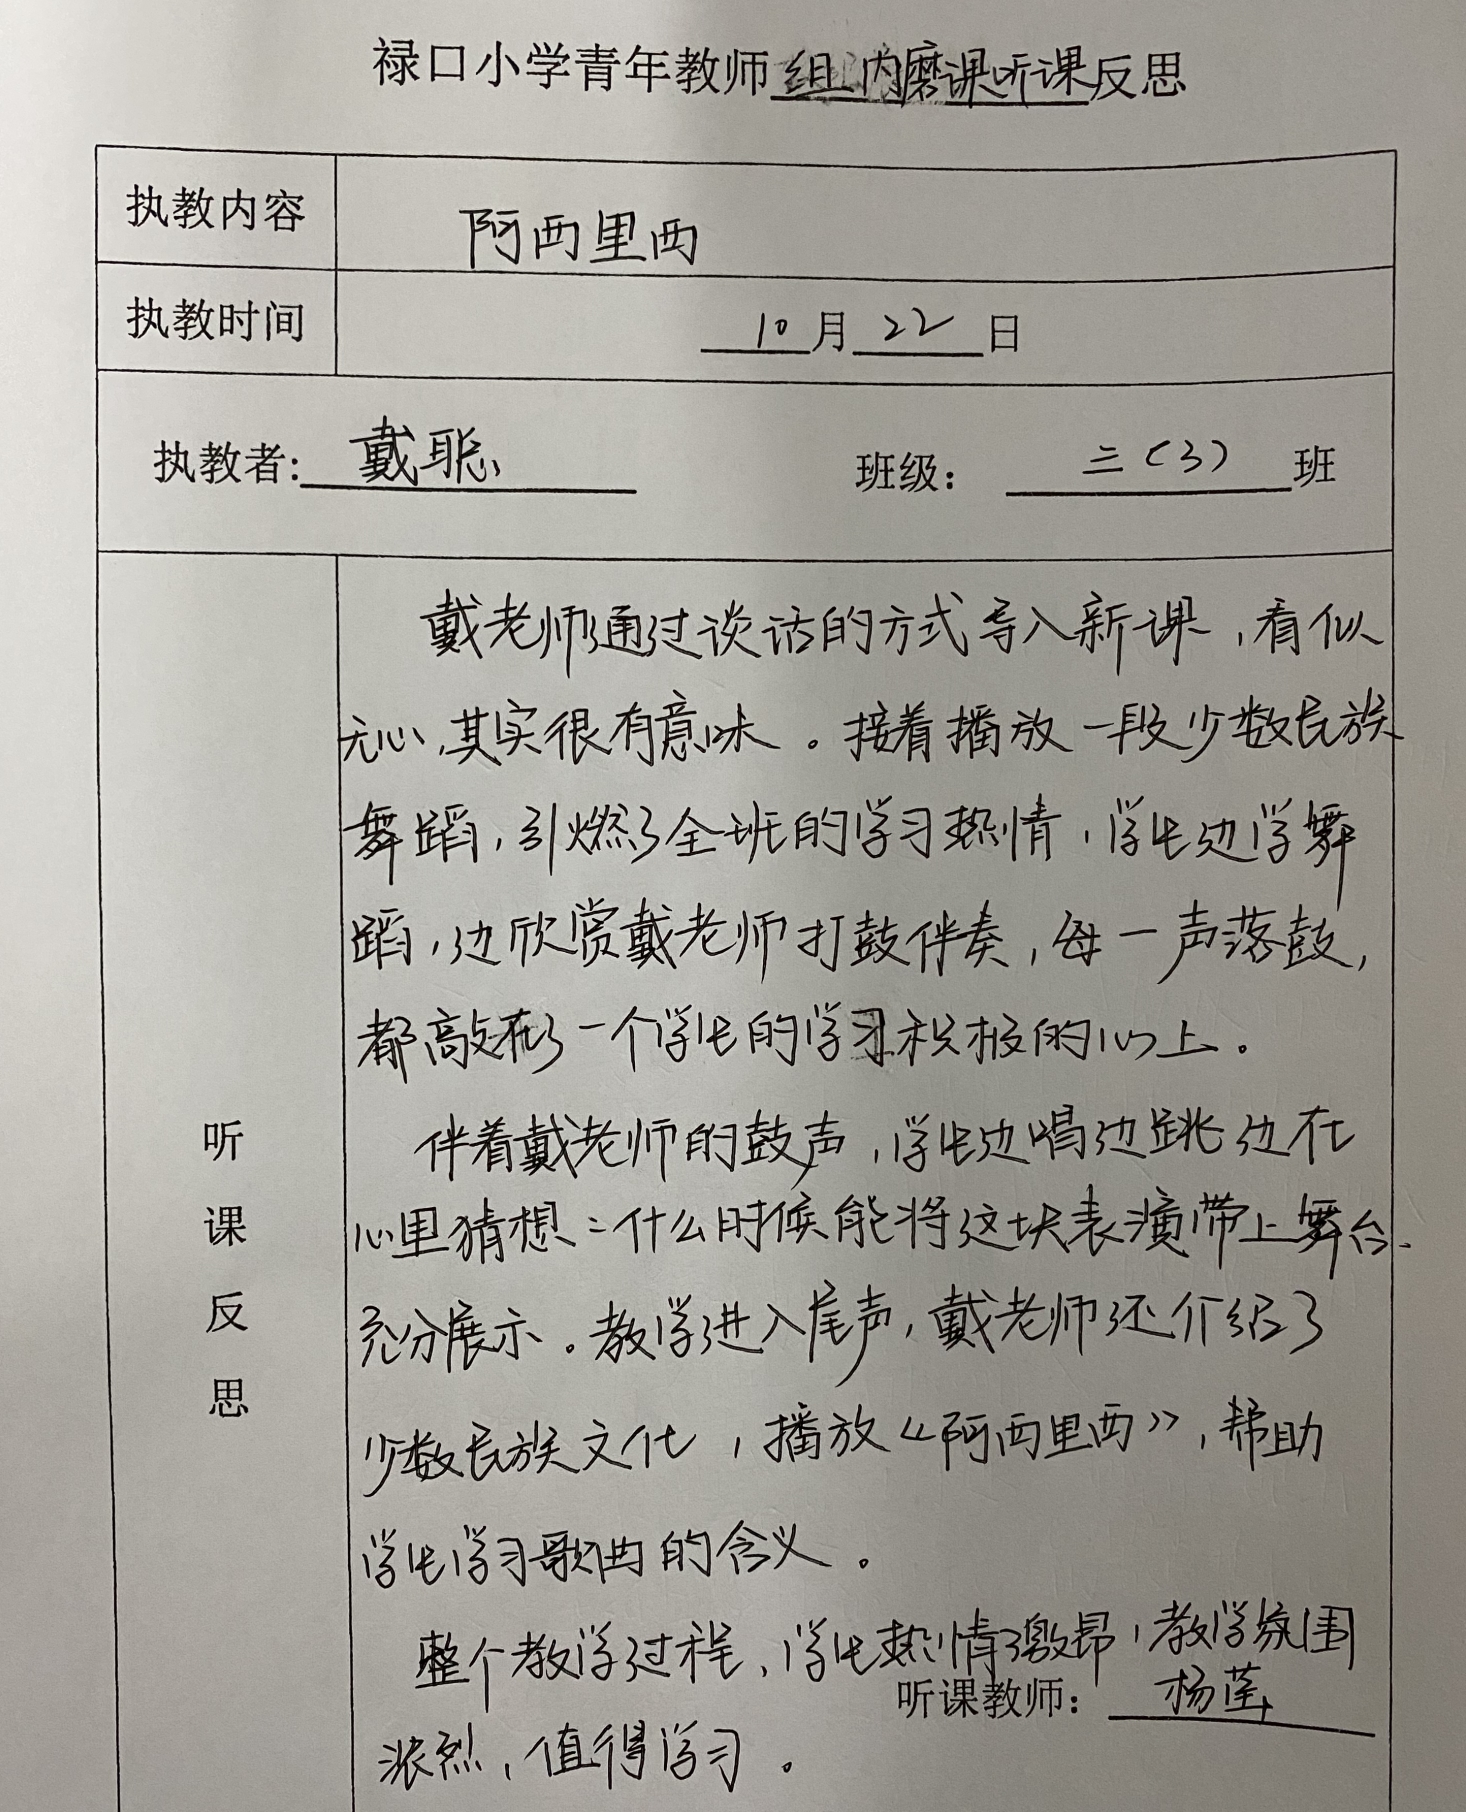 禄口小学青年教师组内磨课听课反思
执教内容
阿西里西
执教时间
10月22日
执教者:戴聪
班级：三(3)班
听课反思
戴老师通过谈话的方式导入新课,看似
无心,其实很有意味。接着播放一段少数民族
舞蹈,引燃了全班的学习热情,学生边学舞
蹈,边欣赏戴老师打鼓伴奏,每一声落鼓,
都敲在了一个学生的学习积极的心上。
伴着戴老师的鼓声,学生边唱边跳边在
心里猜想:什么时候能将这块表演带上舞台、
充分展示。教学进入尾声,戴老师还介绍了
少数民族文化,播放《阿西里西》,帮助
学生学习歌曲的含义。
整个教学过程、学生热情激昂,教学氛围
浓烈,值得学习。
听课教师：杨莲